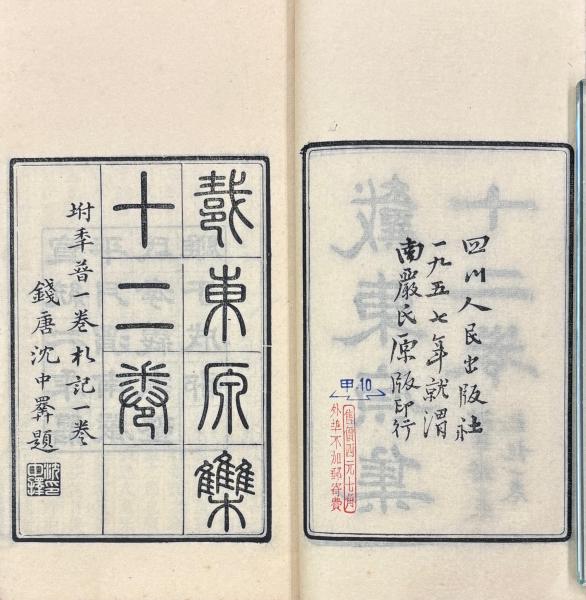 四川人民出版社
一九五七年就渭
南嚴氏原版印行
甲.10
售價四元七角
外埠不加郵寄費
戴東原雧
十二卷
坿秊普一卷札記一卷
錢唐沈中擇題
沈中擇印